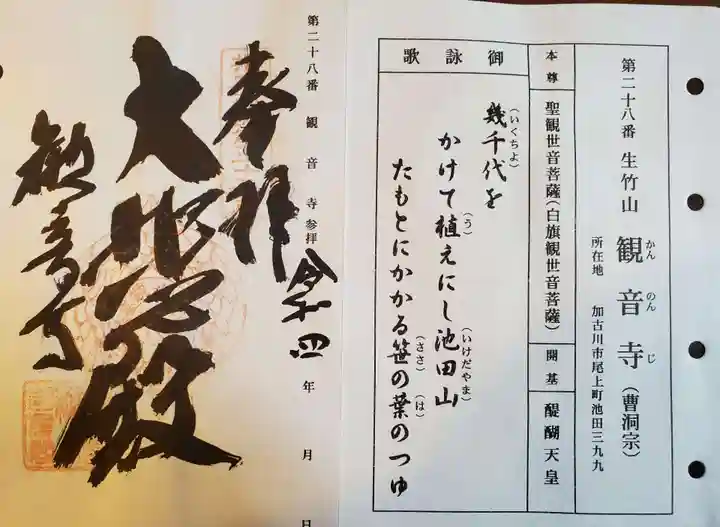 第二十八番 生竹山 観音寺(曹洞宗)
かんのんじ
所在地 加古川市尾上町池田三九九
本尊 聖観世音菩薩(白旗観世音菩薩) 開基 醍醐天皇
御詠歌
幾千代を
(いくちよ)
かけて植えにし池田山
(う) (いけだやま)
たもとにかかる笹の葉のつゆ
(ささ) (は)
第二十八番 観音寺参拝 年 月 日
奉拝
大悲殿
観音寺